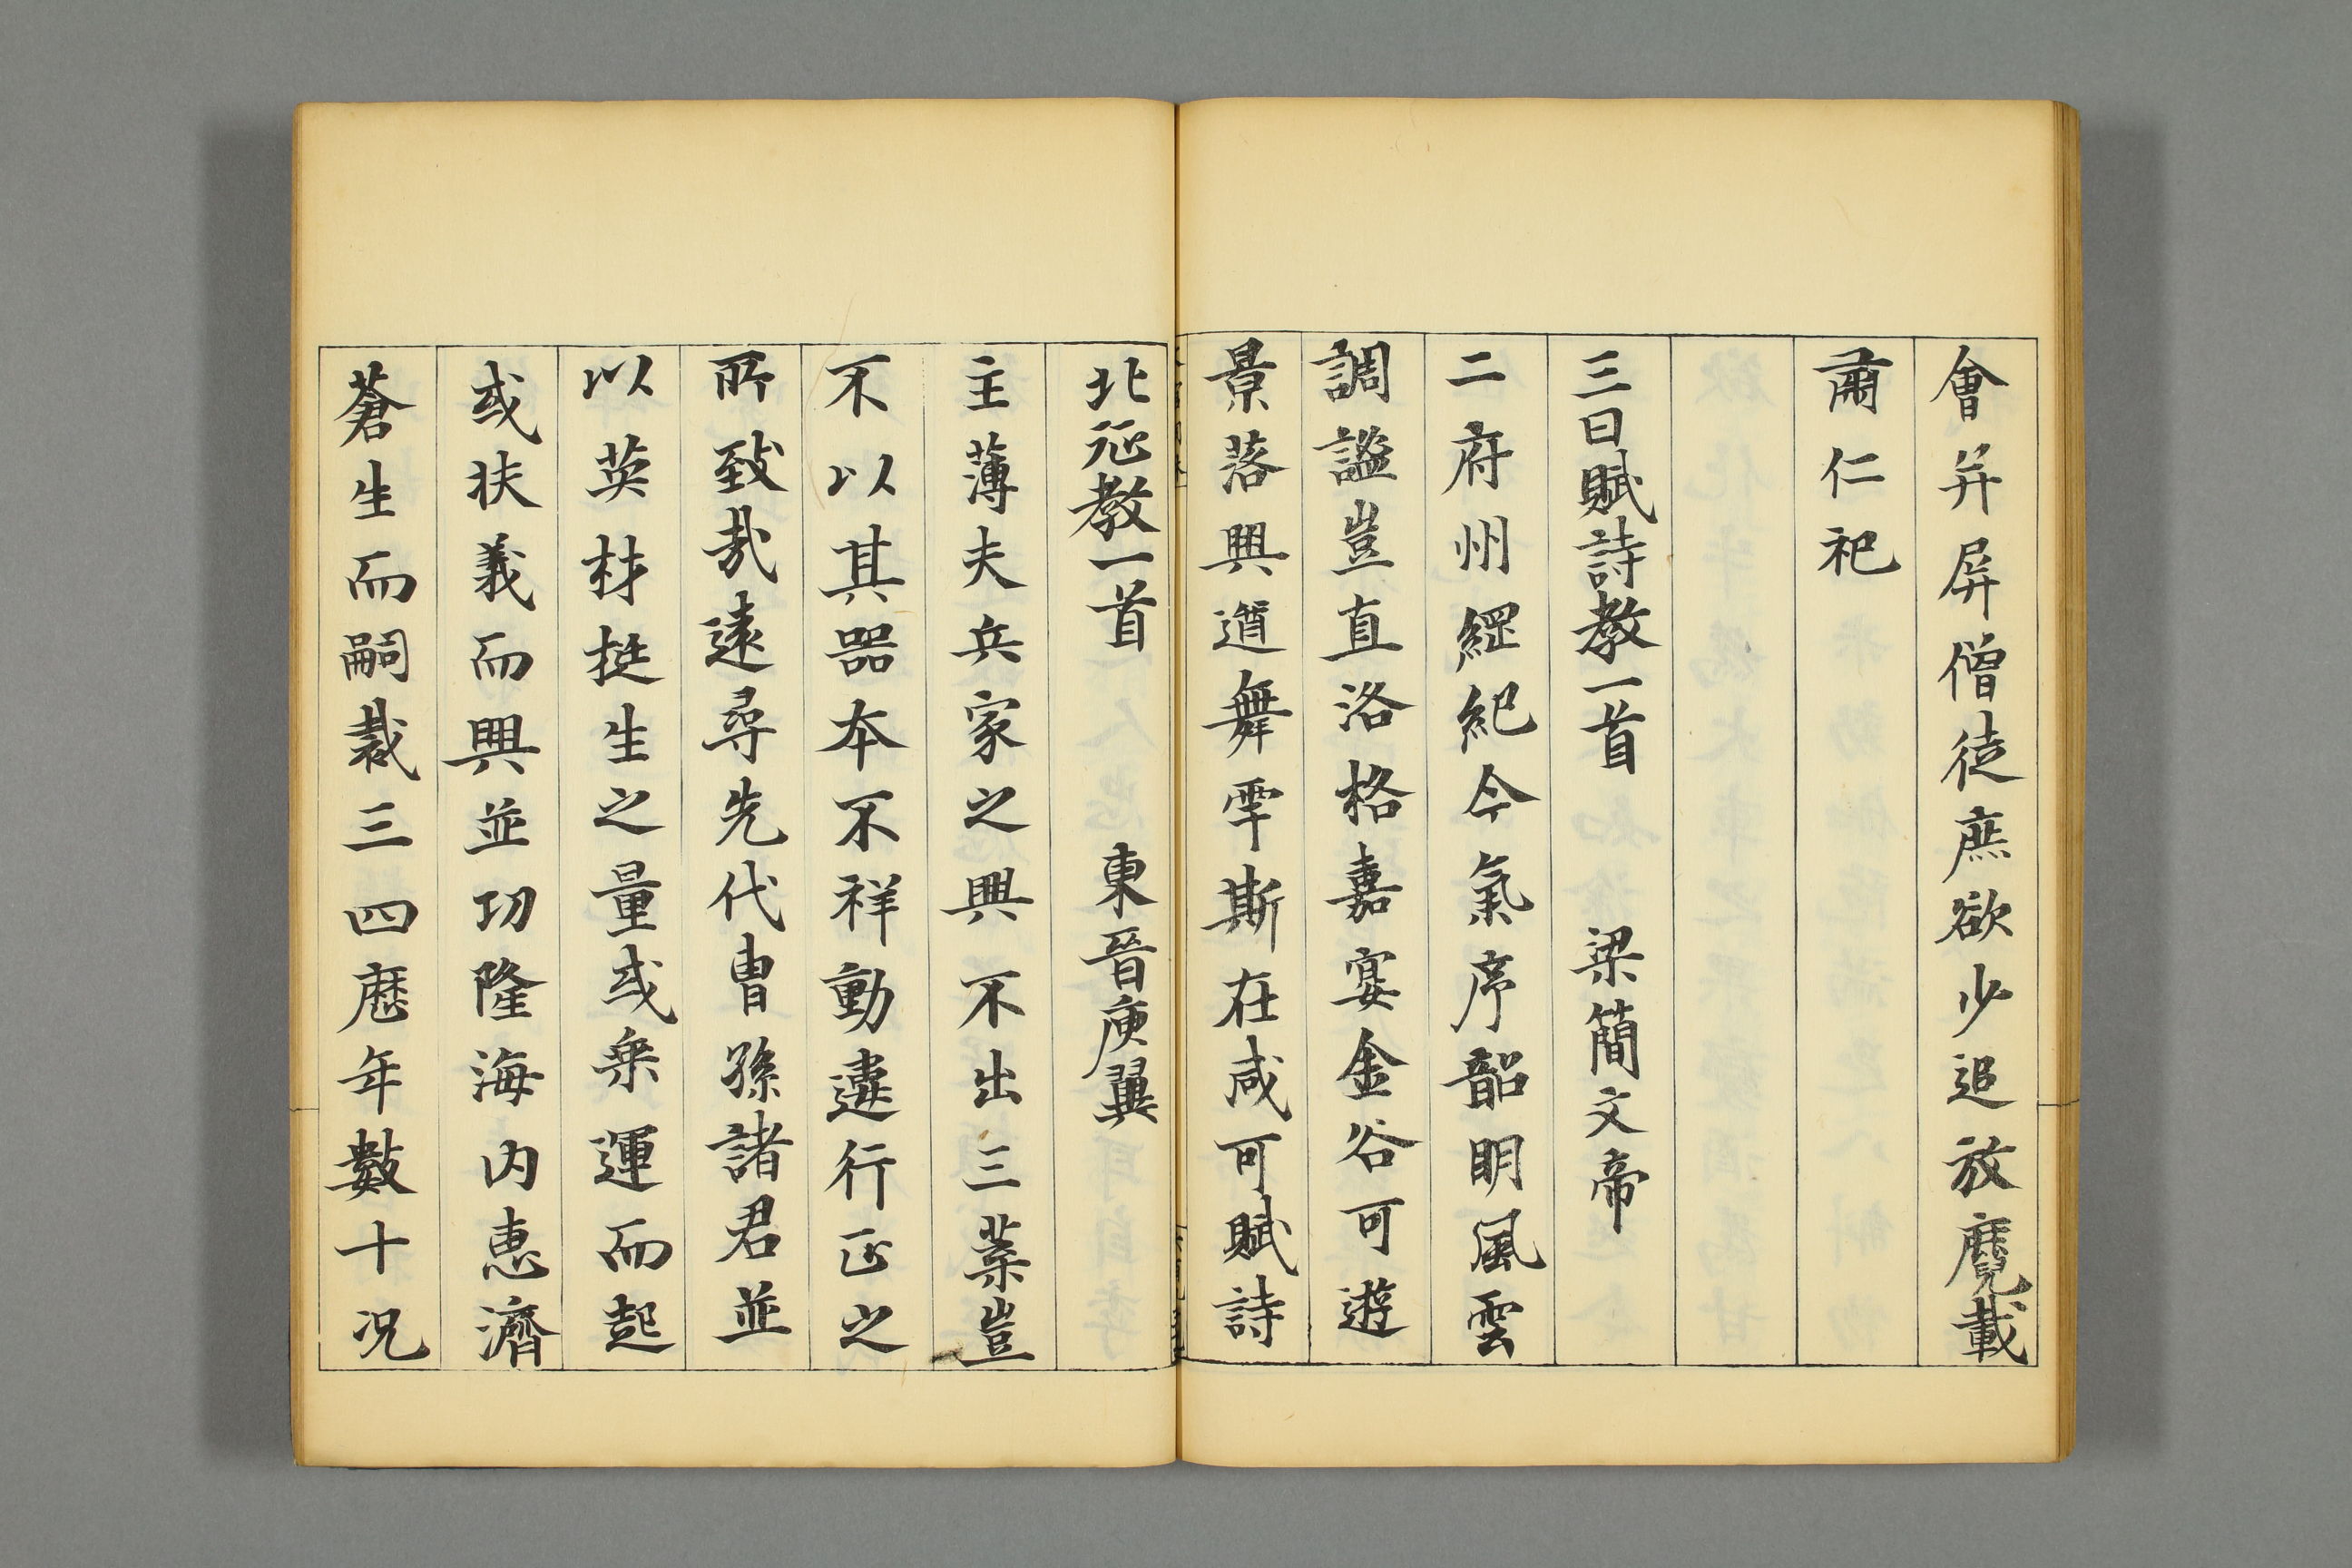 會并屏僧徒庶欲少追放魔載
肅仁祀
三日賦詩教一首 梁簡文帝
二府州綱紀今氣序韶明風雲
調謐豈直洛格嘉宴金谷可遊
景落興遒舞雩斯在咸可賦詩
北征教一首 東晉庾翼
主薄夫兵家之興不出三葉豈
不以其器本不祥動違行正之
所致哉遠尋先代曹孫諸君並
以英材挺生之量或乘運而起
或扶義而興並功隆海內惠濟
蒼生而嗣裁三四歷年數十况